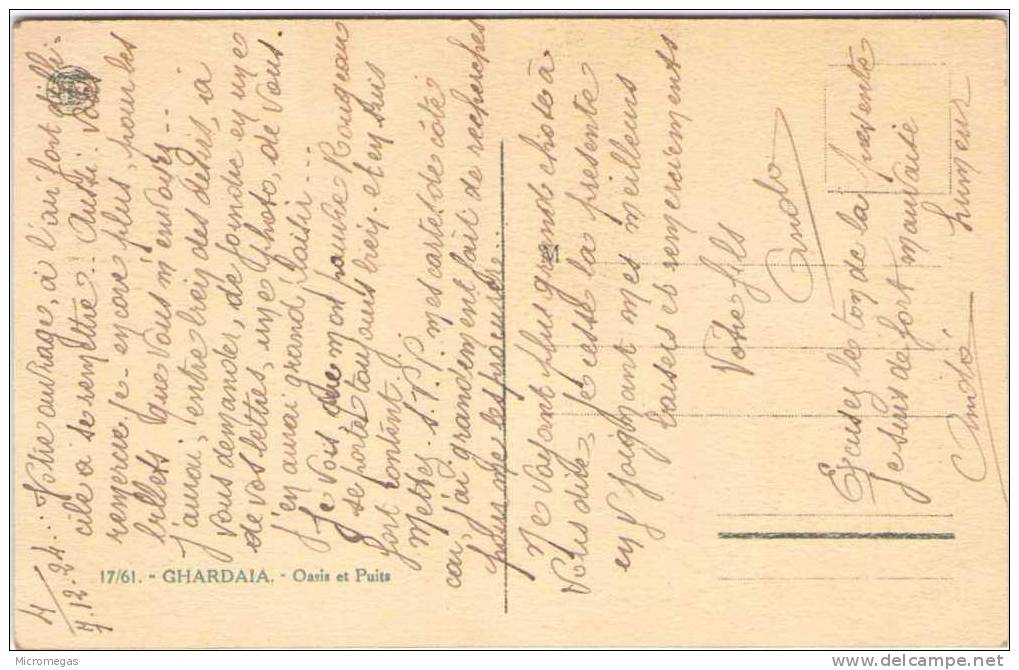 4
7.12.24... Votre ouvrage, à l'air fort diffi-
cile à se remettre... Aussi vous
remercie je encore plus, pour les
billets que vous m'envoyez...
J'aurai, entre
vous demander, de joindre en une
de vos lettres, une photo, de vous.
J'en aurai grand plaisir...
Je vois que mon pauvre Rougeau
se porte toujours bien et en suis
fort content.
Mettez. S.V.P. mes cartes de côté
car, j'ai grandement fait de recherches
pour me les procurer...
Ne voyant plus grand chose à
vous dire, je cesse la présente
en y joignant mes meilleurs
baisers et remerciements
Votre fils
Excusez le ton de la présente
Je suis de fort mauvaise
humeur
17/61. - GHARDAIA. - Oasis et Puits
Micromegas
delcampe.net